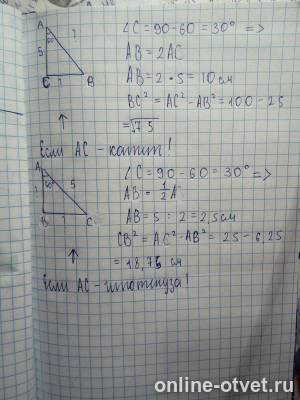 A
60°
?
5
C
?
B
∠C = 90-60 = 30° =>
AB = 2AC
AB = 2 · 5 = 10 см
BC² = AC² - AB² = 100 - 25
= √75
Если AC - катит!
A
60°
?
5
B
?
C
∠C = 90 - 60 = 30° =>
AB = 1/2 A
AB = 5 : 2 = 2,5 см
CB² = AC² - AB² = 25 - 6,25
= 18,75 см
Если AC - гипотенуза!
online-otvet.ru